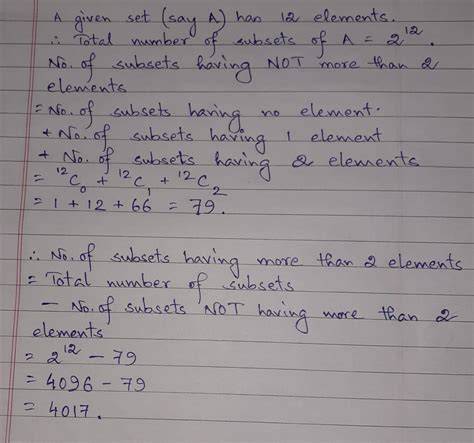 A given set (say A) has 12 elements.
∴ Total number of subsets of A = 2¹².
No. of subsets having NOT more than 2
elements
= No. of subsets having no element.
+ No. of subsets having 1 element
+ No. of subsets having 2 elements
= ¹²C₀ + ¹²C₁ + ¹²C₂
= 1 + 12 + 66 = 79.
∴ No. of subsets having more than 2 elements
= Total number of subsets
− No. of subsets NOT having more than 2
elements
= 2¹² − 79
= 4096 − 79
= 4017.